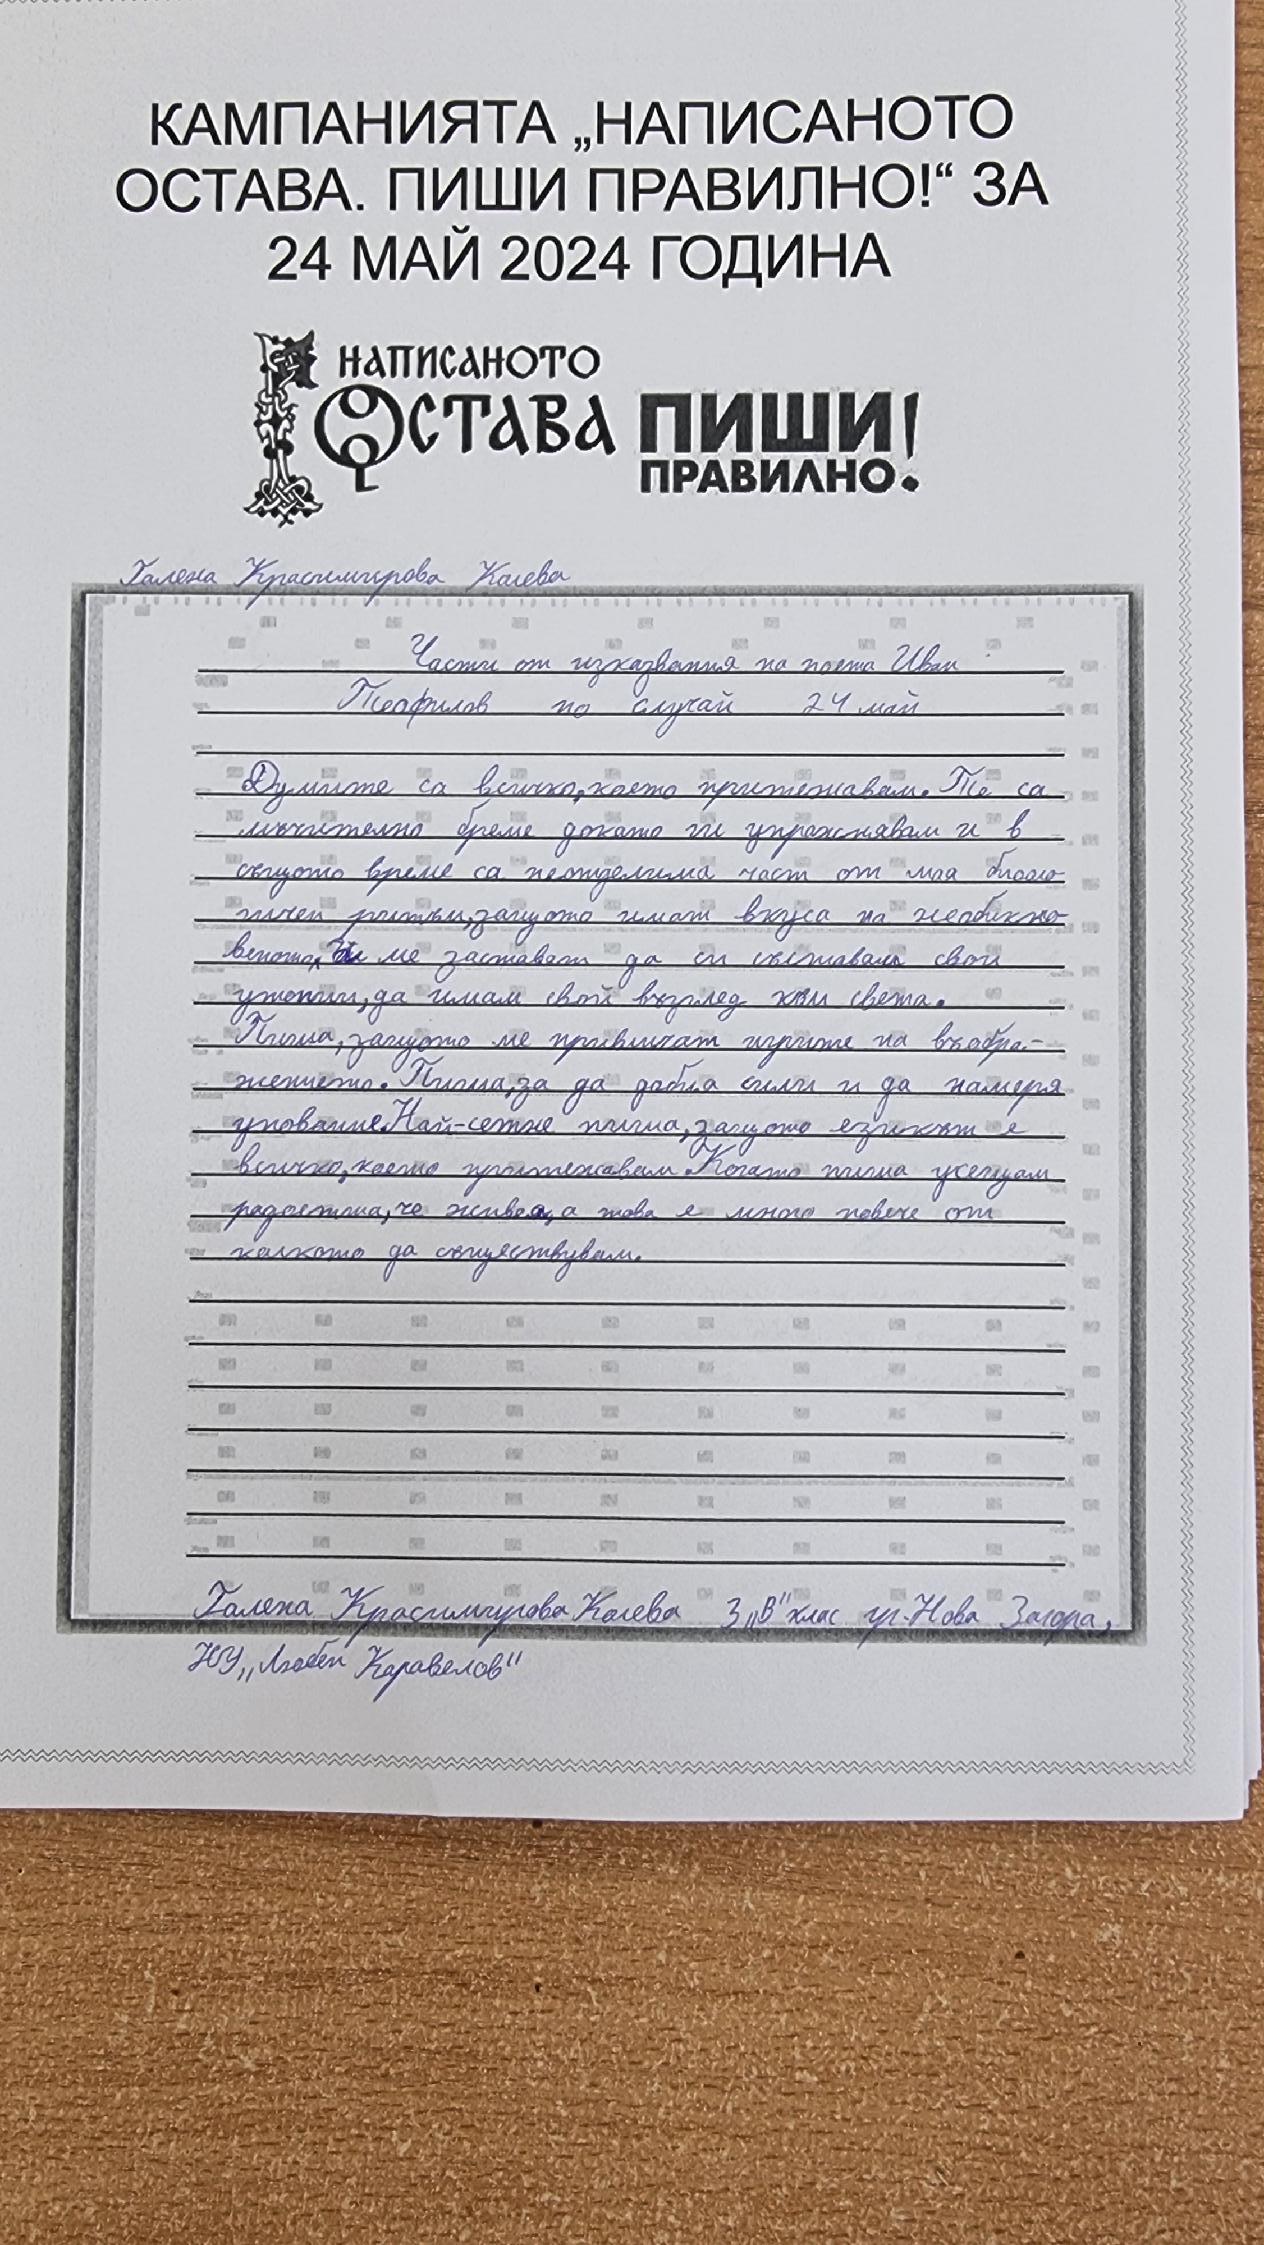 КАМПАНИЯТА „НАПИСАНОТО
ОСТАВА. ПИШИ ПРАВИЛНО!“ ЗА
24 МАЙ 2024 ГОДИНА
НАПИСАНОТО
ОСТАВА ПИШИ!
ПРАВИЛНО
Галена Красимирова Калева
Части от изказвания на поета Иван
Теофилов по случай 24 май
Думите са всичко, което притежавам. Те са
мъчително бреме докато ги упражнявам и в
същото време са неотделима част от моя биоло-
гичен ритъм, защото имат вкуса на необикно-
веното, Те ме заставят да си съставям свои
утопии, да имам свой възглед към света.
Пиша, защото ме привличат игрите на въобра-
жението. Пиша, за да добия сили и да намеря
упование. Най-сетне пиша, защото езикът е
всичко, което притежавам. Когато пиша усещам
радостта, че живея, а това е много повече от
колкото да съществувам.
Галена Красимирова Калева 3 „В“ клас гр. Нова Загора,
НУ „Любен Каравелов“